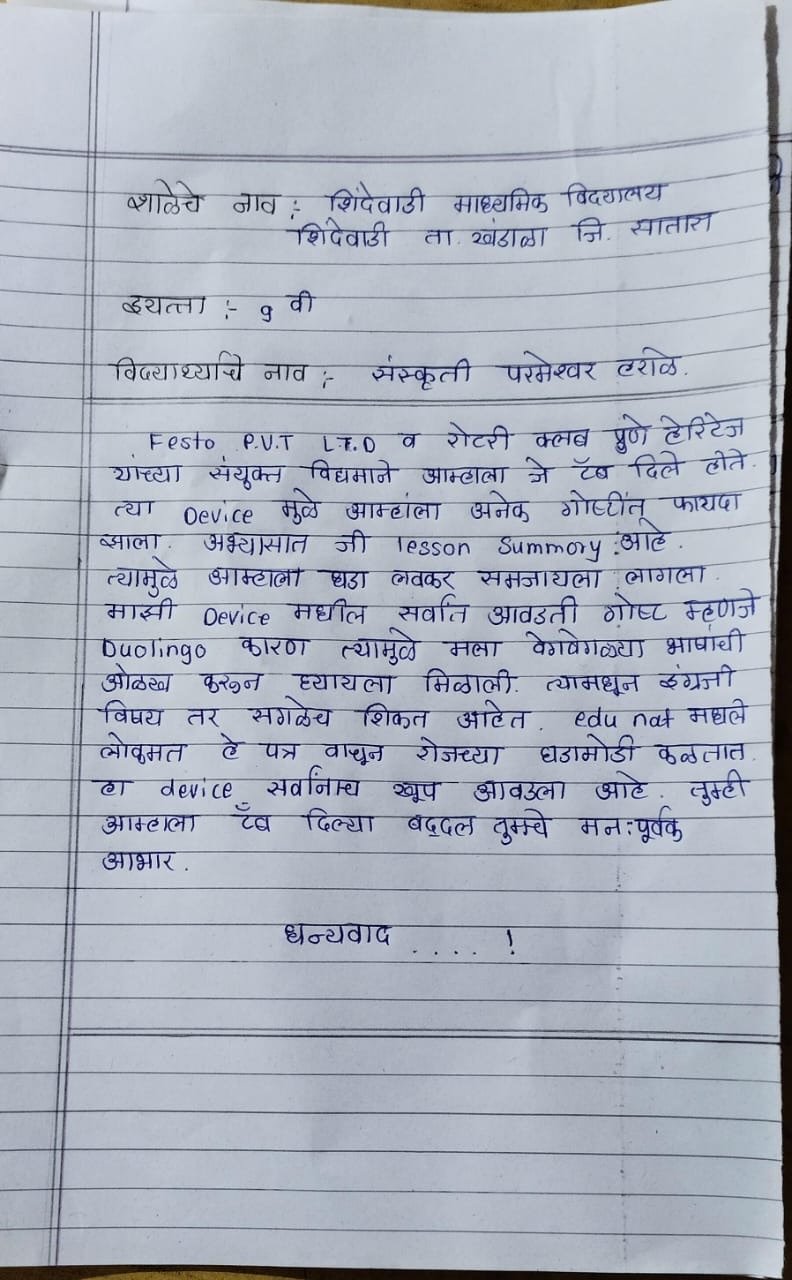 शाळेचे नाव :- शिंदेवाडी माध्यमिक विद्यालय
शिंदेवाडी ता. खंडाळा जि. सातारा
इयत्ता :- 9 वी
विद्यार्थ्याचे नाव :- संस्कृती परमेश्वर हराळे.
Festo P.V.T LT.D व रोटरी क्लब पुणे हेरिटेज
यांच्या संयुक्त विद्यमाने आम्हाला जे टॅब दिले होते.
त्या Device मुळे आम्हांला अनेक गोष्टींत फायदा
झाला. अभ्यासात जी lesson Summory आहे.
त्यामुळे आम्हाला धडा लवकर समजायला लागला.
माझी Device मधील सर्वात आवडती गोष्ट म्हणजे
Duolingo कारण त्यामुळे मला वेगवेगळ्या भाषांची
ओळख करून घ्यायला मिळाली. त्यामधून इंग्रजी
विषय तर सगळेच शिकत आहेत. edu nat मधले
लोकमत हे पत्र वाचून रोजच्या घडामोडी कळतात.
हा device सर्वांनाच खूप आवडला आहे. तुम्ही
आम्हाला टॅब दिल्या बद्दल तुमचे मनःपूर्वक
आभार.
धन्यवाद ....!